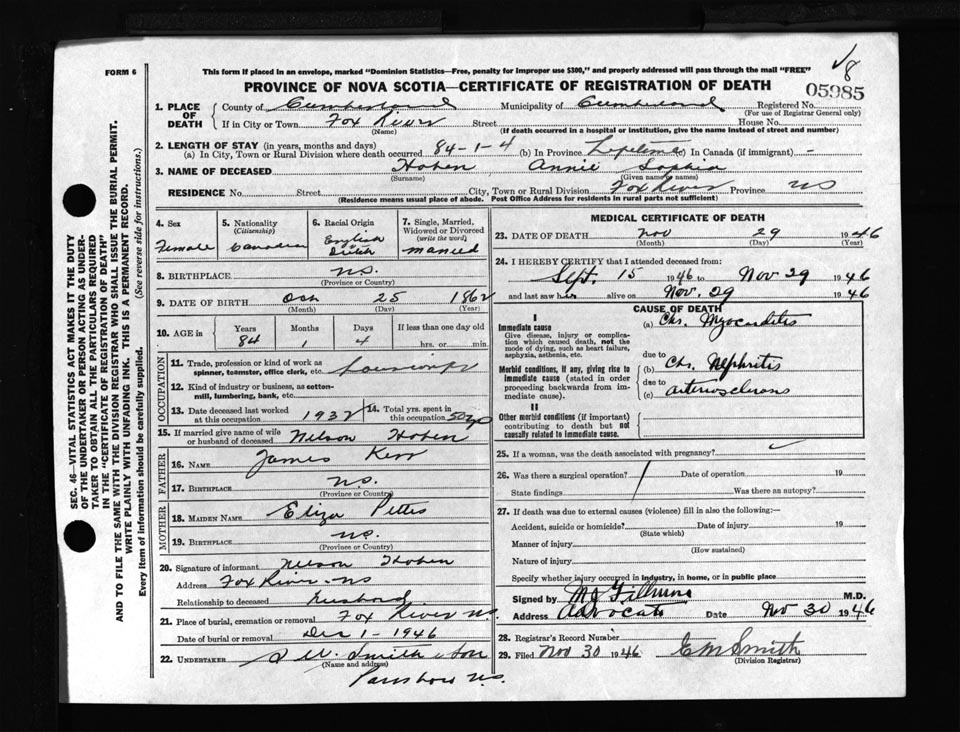 FORM 6
This form if placed in an envelope, marked "Dominion Statistics—Free, penalty for improper use $300," and properly addressed will pass through the mail "FREE"
8
PROVINCE OF NOVA SCOTIA—CERTIFICATE OF REGISTRATION OF DEATH
05985
SEC. 46—VITAL STATISTICS ACT MAKES IT THE DUTY
OF THE UNDERTAKER OR PERSON ACTING AS UNDER-
TAKER TO OBTAIN ALL THE PARTICULARS REQUIRED
IN THE "CERTIFICATE OF REGISTRATION OF DEATH"
AND TO FILE THE SAME WITH THE DIVISION REGISTRAR WHO SHALL ISSUE THE BURIAL PERMIT.
WRITE PLAINLY WITH UNFADING INK. THIS IS A PERMANENT RECORD.
(See reverse side for instructions.)
Every item of information should be carefully supplied.
1. PLACE OF DEATH
County of Cumberland Municipality of Cumberland Registered No.
(For use of Registrar General only)
If in City or Town Fox River Street House No.
(Name) (If death occurred in a hospital or institution, give the name instead of street and number)
2. LENGTH OF STAY (in years, months and days)
(a) In City, Town or Rural Division where death occurred 84-1-4 (b) In Province Lifetime (c) In Canada (if immigrant) -
3. NAME OF DECEASED Hoben Annie Sophia
(Surname) (Given name or names)
RESIDENCE No. Street City, Town or Rural Division Fox River Province NS
(Residence means usual place of abode. Post Office Address for residents in rural parts not sufficient)
4. Sex
Female
5. Nationality
(Citizenship)
Canadian
6. Racial Origin
English
7. Single, Married,
Widowed or Divorced
(write the word)
Married
8. BIRTHPLACE N.S.
(Province or Country)
9. DATE OF BIRTH Oct 25 1862
(Month) (Day) (Year)
10. AGE in
Years Months Days If less than one day old
84 1 4 hrs. or min.
OCCUPATION
11. Trade, profession or kind of work as
spinner, teamster, office clerk, etc. housewife
12. Kind of industry or business, as cotton-
mill, lumbering, bank, etc.
13. Date deceased last worked
at this occupation 1932
14. Total yrs. spent in
this occupation 50
15. If married give name of wife
or husband of deceased Nelson Hoben
FATHER
16. NAME James Kerr
17. BIRTHPLACE N.S.
(Province or Country)
MOTHER
18. MAIDEN NAME Eliza Pettis
19. BIRTHPLACE N.S.
(Province or Country)
20. Signature of informant Nelson Hoben
Address Fox River NS
Relationship to deceased husband
21. Place of burial, cremation or removal Fox River N.S.
Date of burial or removal Dec 1 - 1946
22. UNDERTAKER Smith & Son
(Name and address)
Parrsboro N.S.
MEDICAL CERTIFICATE OF DEATH
23. DATE OF DEATH Nov 29 1946
(Month) (Day) (Year)
24. I HEREBY CERTIFY that I attended deceased from:
Sept. 15 1946 to Nov 29 1946
and last saw her alive on Nov. 29 1946
CAUSE OF DEATH
I
Immediate cause
Give disease, injury or complica-
tion which caused death, not the
mode of dying, such as heart failure,
asphyxia, asthenia, etc.
(a) Chr. Myocarditis
due to
Morbid conditions, if any, giving rise to
immediate cause (stated in order
proceeding backwards from im-
mediate cause).
(b) Chr. Nephritis
due to
(c) arteriosclerosis
II
Other morbid conditions (if important)
contributing to death but not
causally related to immediate cause.
25. If a woman, was the death associated with pregnancy?
26. Was there a surgical operation? Date of operation 19
State findings Was there an autopsy?
27. If death was due to external causes (violence) fill in also the following:—
Accident, suicide or homicide? Date of injury 19
(State which)
Manner of injury
(How sustained)
Nature of injury
Specify whether injury occurred in industry, in home, or in public place
Signed by M.D.
Address Advocate Date Nov 30 1946
28. Registrar's Record Number
29. Filed Nov 30 1946 C M Smith
(Division Registrar)